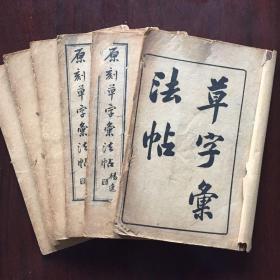 草字彙
法帖
原刻草字彙法帖
原刻草字彙法帖